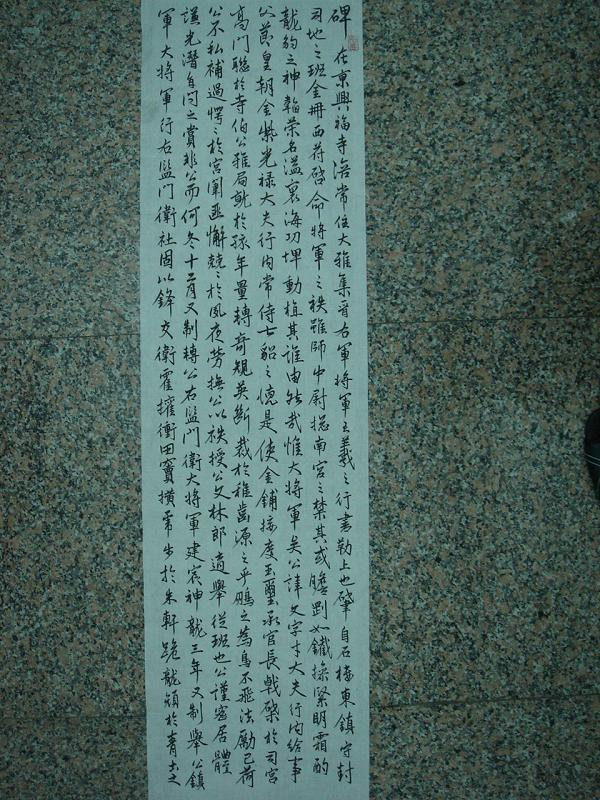 碑在京興福寺涪常住大雅集晉右軍將軍王羲之行書勒上也肇自石樓東鎮守封
司地之班金冊西符啓命將軍之秩雖師中尉揔南宮之禁其或膽剛如鐵操緊明霜酌
龍鈞之神翰榮名溢裏海功埤動植其誰由然哉惟大將軍矣公諱文字才大夫行內給事
父節皇朝金紫光祿大夫行內常侍七貂之傯是使金鋪接慶玉璽承官長戟棨於司宮
高門聡於寺伯公雅局就於孩年量轉奇規英斷裁於稚齒源之乎鵬之為鳥不飛法勵己荷
公不私補過愕之於宮闈匪懈兢之於夙夜勞撫公以秩授公文林郎適舉從班也公謹密居體
謹光潛自閂之賞非公而何冬十二月又制轉公右監門衛大將軍建宸神龍三年又制舉公鎮
軍大將軍行右監門衛社固以鋒交衛霍擁衝田竇攢番步於朱軒跪龍頒於青土之